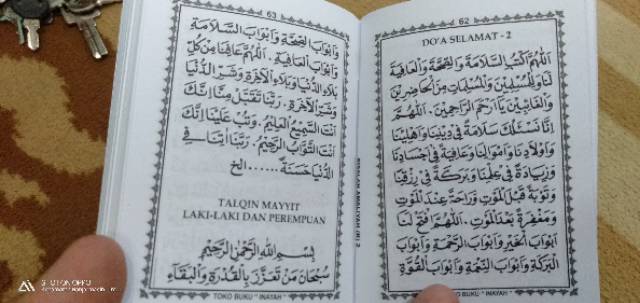 62
DO'A SELAMAT - 2
اَللّٰهُمَّ اكْتُبِ السَّلَامَةَ وَالصِّحَّةَ وَالْعَافِيَةَ
لَنَا وَلِلْمُسْلِمِيْنَ وَالْمُسْلِمَاتِ مِنَ الْحَاضِرِيْنَ
وَالْغَائِبِيْنَ يَا اَرْحَمَ الرَّاحِمِيْنَ. اَللّٰهُمَّ
اِنَّا نَسْئَلُكَ سَلَامَةً فِى دِيْنِنَا وَاَهْلِيْنَا
وَاَوْلَادِنَا وَاَمْوَالِنَا وَعَافِيَةً فِى اَجْسَادِنَا
وَزِيَادَةً فِى عِلْمِنَا وَبَرَكَةً فِى رِزْقِنَا
وَتَوْبَةً قَبْلَ الْمَوْتِ وَرَاحَةً عِنْدَ الْمَوْتِ
وَمَغْفِرَةً بَعْدَ الْمَوْتِ. اَللّٰهُمَّ افْتَحْ لَنَا
اَبْوَابَ الْخَيْرِ وَاَبْوَابَ الرَّحْمَةِ وَاَبْوَابَ
الْبَرَكَةِ وَاَبْوَابَ النِّعْمَةِ وَاَبْوَابَ الْقُوَّةِ
TOKO BUKU " INAYAH "
63
وَاَبْوَابَ الصِّحَّةِ وَاَبْوَابَ السَّلَامَةِ
وَاَبْوَابَ الْعَافِيَةِ. اَللّٰهُمَّ عَافِنَا مِنْ كُلِّ
بَلَاءِ الدُّنْيَا وَبَلَاءِ الْاٰخِرَةِ وَشَرِّ الدُّنْيَا
وَشَرِّ الْاٰخِرَةِ. رَبَّنَا تَقَبَّلْ مِنَّا اِنَّكَ
اَنْتَ السَّمِيْعُ الْعَلِيْمُ. وَتُبْ عَلَيْنَا اِنَّكَ
اَنْتَ التَّوَّابُ الرَّحِيْمُ. رَبَّنَا اٰتِنَا فِى
الدُّنْيَا حَسَنَةً ...... الخ
TALQIN MAYYIT
LAKI-LAKI DAN PEREMPUAN
بِسْمِ اللهِ الرَّحْمٰنِ الرَّحِيْمِ
سُبْحَانَ مَنْ تَعَزَّزَ بِالْقُدْرَةِ وَالْبَقَاءِ
TOKO BUKU " INAYAH "